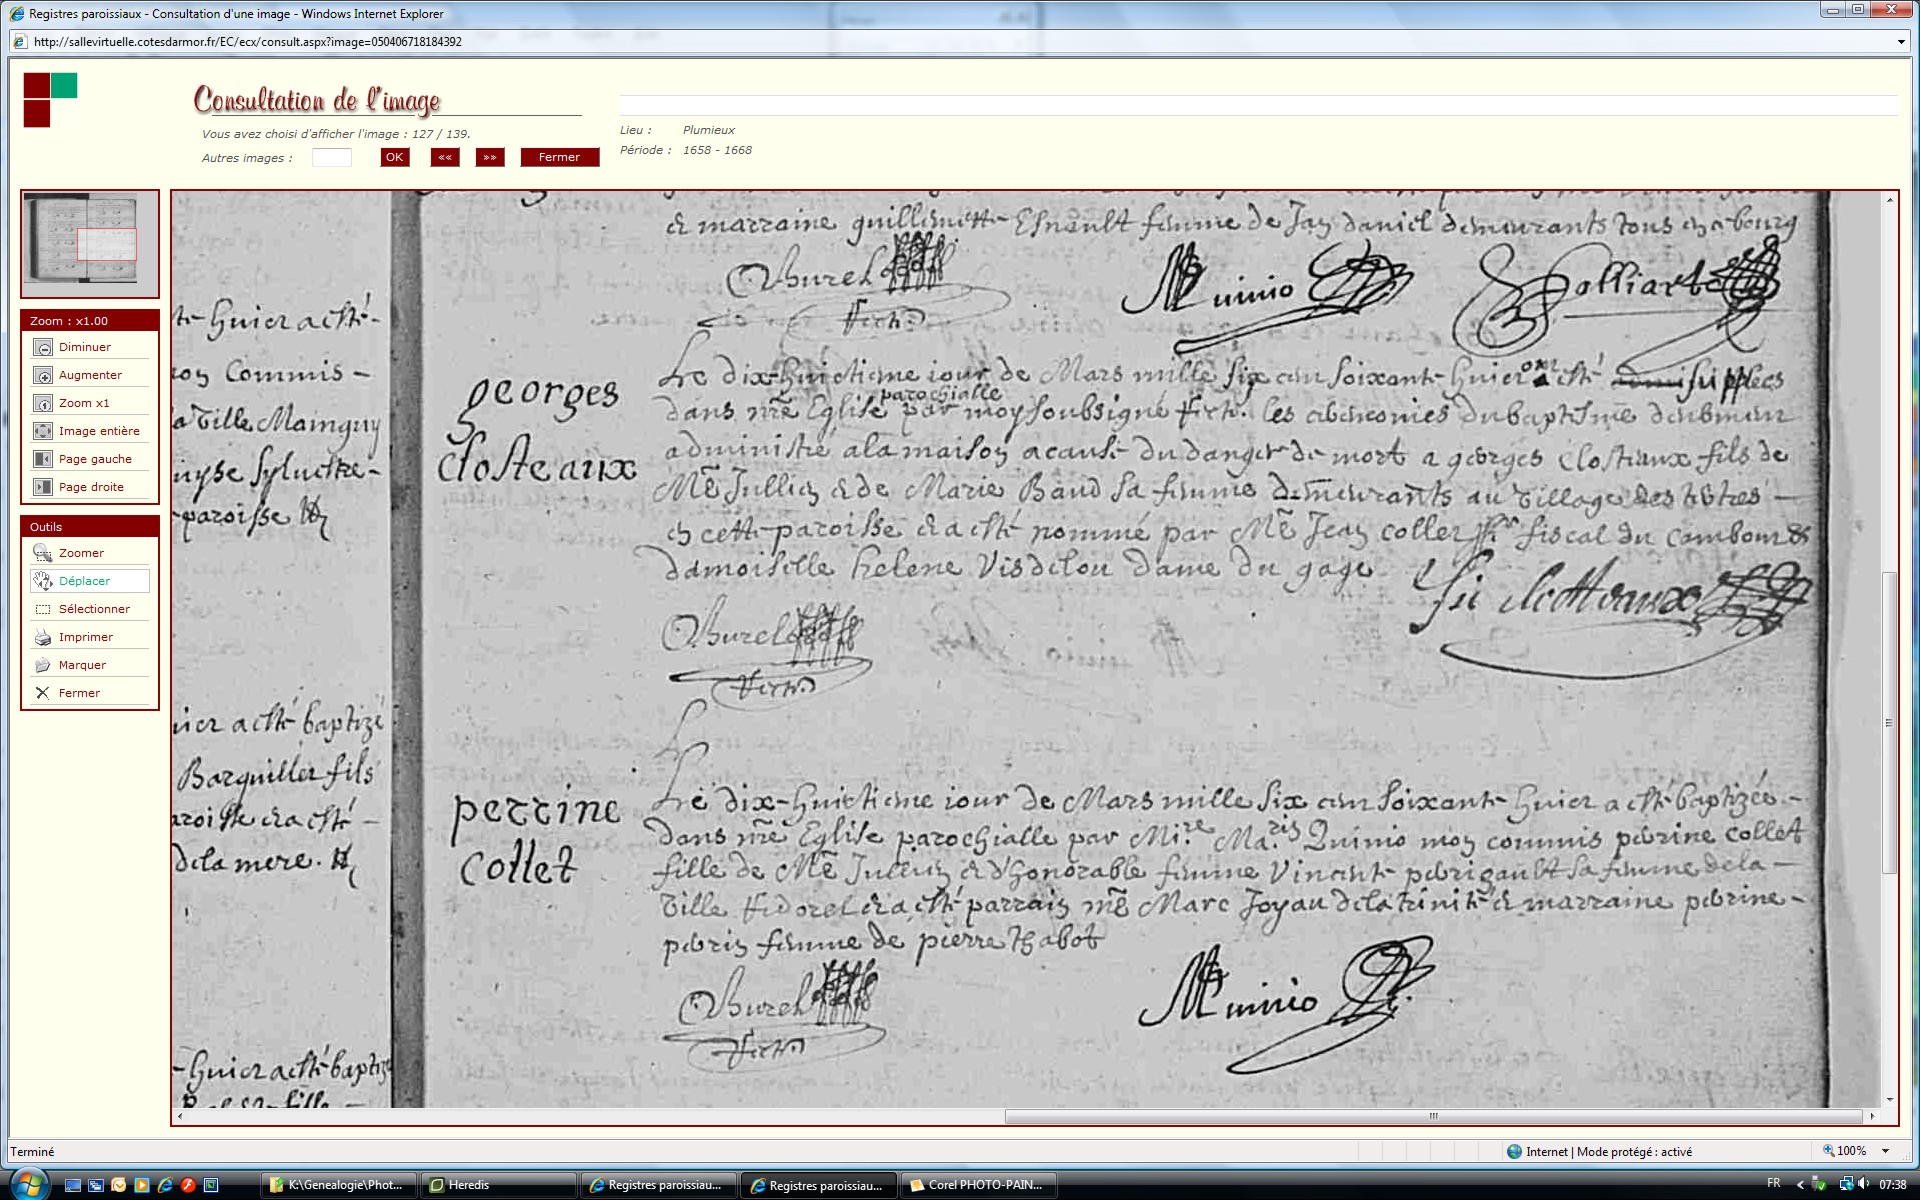 Registres paroissiaux - Consultation d'une image - Windows Internet Explorer
http://sallevirtuelle.cotesdarmor.fr/EC/ecx/consult.aspx?image=050406718184392
Consultation de l'image
Vous avez choisi d'afficher l'image : 127 / 139.
Autres images :
OK
««
»»
Fermer
Lieu : Plumieux
Période : 1658 - 1668
Zoom : x1.00
Diminuer
Augmenter
Zoom x1
Image entière
Page gauche
Page droite
Outils
Zoomer
Déplacer
Sélectionner
Imprimer
Marquer
Fermer
huict a esté
Commis
la Ville Mainguy
Sylvestre
paroisse
a esté baptizé
Barquiller fils
a esté
de la mere.
huict a esté baptizé
fille
& marraine guillemette Esnault femme de Jan daniel demeurants tous en ce bourg
Burel
Rect.
Quinio
georges
closteaux
Le dix-huictieme iour de Mars mille six cent soixante huict ont esté suppleés
parochialle
dans nre Eglise par moy soubsigné Rectr. les ceremonies du baptesme deubment
administré a la maison a cause du danger de mort a georges closteaux fils de
Me Jullien & de Marie Baud sa femme demeurants au village des
en cette paroisse & a esté nommé par Me Jean collet fiscal du cambout &
damoiselle helene Visdelou dame du gage
Burel
Rect.
Le dix-huictieme iour de Mars mille six cent soixante huict a esté baptizée
perrine
collet
dans nre Eglise parochialle par Mi.re Ma.ris Quinio mon commis perrine collet
fille de Me Jullien & d'honorable femme Vincente perrigault sa femme de la
Ville & a esté parrain me Marc Joyau de la trinité & marraine perrine
perrin femme de pierre thabot
Burel
Rect.
Quinio
Terminé
Internet | Mode protégé : activé
100%
K:\Genealogie\Phot...
Heredis
Registres paroissiau...
Registres paroissiau...
Corel PHOTO-PAIN...
FR
07:38